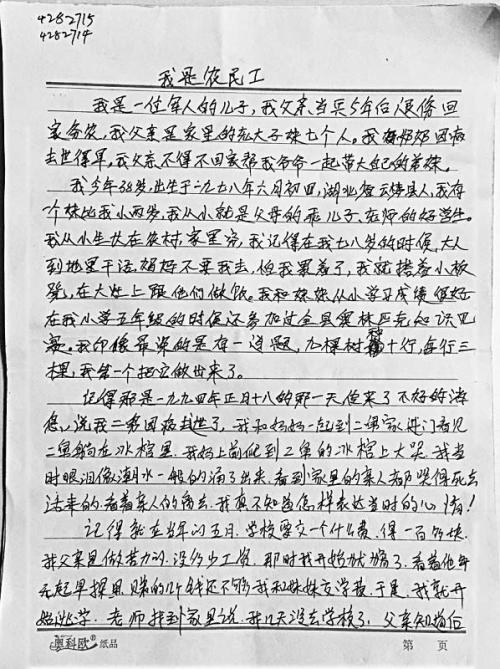 4282715
4282714
我是农民工
我是一位军人的儿子,我父亲当兵5年后退伍回
家务农,我父亲是家里的老大子妹七个人。我奶奶因病
去世得早,我父亲不得不回家帮我爷爷一起带大自己的弟妹。
我今年38岁,出生于一九七八年六月初四,湖北省云梦县人,我有
个妹比我小两岁,我从小就是父母的乖儿子、老师的好学生。
我从小生长在农村,家里穷,我记得在我七八岁的时候,大人
到地里干活,妈妈不要我去,怕我累着了,我就搭着小板
凳,在大灶上跟他们做饭。我和妹妹从小学习成绩很好
在我小学五年级的时候还参加过全县奥林匹克知识竞
赛。我印像最深的是有一道题,九棵树种十行,每行三
棵,我第一个把它做出来了。
记得那是一九九四年正月十八的那一天传来了不好的消
息,说我二爹因病去逝了,我和妈妈一起到二爹家进门看见
二爹躺在冰棺里,我妈上前爬到二爹的冰棺上大哭,我当
时眼泪像潮水一般的涌了出来,看到家里的亲人都哭得死去
活来的,看着亲人的离去,我真不知道怎样表达当时的心情!
记得就在当年的五月,学校要交一个什么费,得一百多块
我父亲是做苦力的,没多少工资,那时我开始犹豫了,看着他每
天起早摸黑,赚的几个钱还不够我和妹妹交学费,于是,我就开
始逃学,老师找到家里说,我几天没去学校了,父亲知道后
奥科欧®纸品 第 页